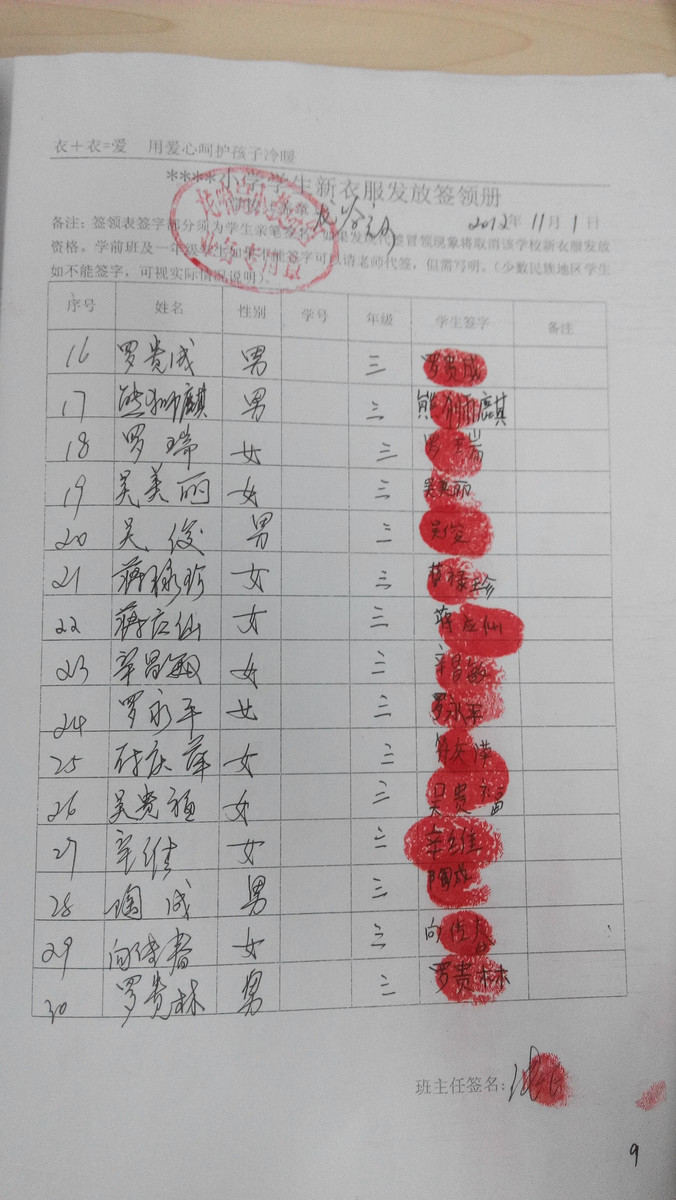 衣+衣=爱 用爱心呵护孩子冷暖
****小学学生新衣服发放签领册
2012年 11月 1日
备注：签领表签字部分须为学生亲笔签名，如果发现代签冒领现象将取消该学校新衣服发放
资格。学前班及一年级学生如果不能签字可以请老师代签，但需写明。（少数民族地区学生
如不能签字，可视实际情况说明）。
序号 姓名 性别 学号 年级 学生签字 备注
16 罗贵成 男 三 罗贵成
17 熊狮麒 男 三 熊狮麒
18 罗瑞 女 三 罗瑞
19 吴美丽 女 三 吴美丽
20 吴俊 男 三 吴俊
21 蒋禄珍 女 三 蒋禄珍
22 蒋应仙 女 三 蒋应仙
23 辛昌敏 女 三 辛昌敏
24 罗永平 女 三 罗永平
25 女 三
26 吴贵福 女 三 吴贵福
27 辛维 女 三 辛维
28 陶成 男 三 陶成
29 女 三
30 罗贵林 男 三 罗贵林
班主任签名：
9